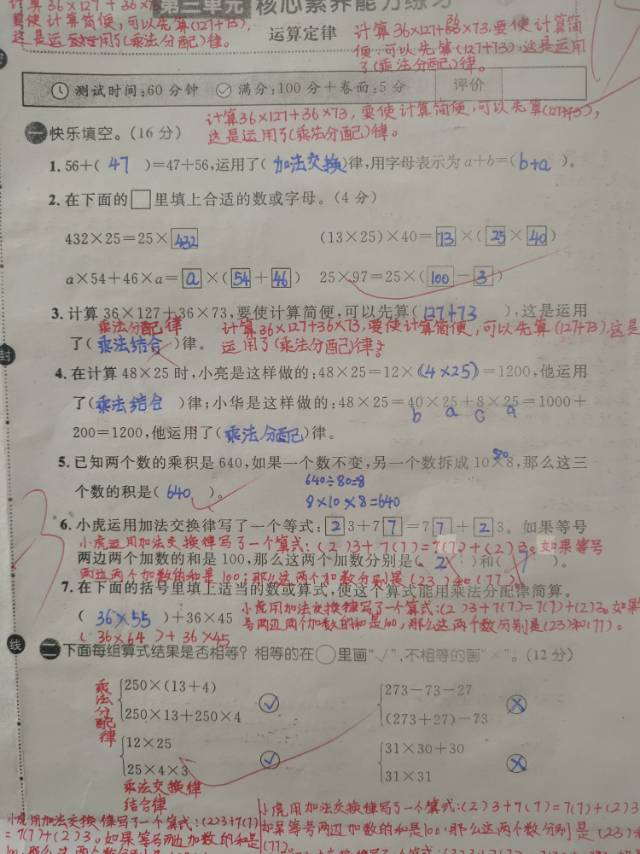 计算36×127+36×7
要使计算简便,可以先算(127+73),
这是运用了(乘法分配)律。
第三单元 核心素养能力练习
运算定律
计算36×127+36×73,要使计算简
便,可以先算(127+73),这是运用
了(乘法分配)律。
测试时间:60分钟 满分:100分+卷面:5分 评价
计算36×127+36×73,要使计算简便,可以先算(127+73),
这是运用了(乘法分配)律。
一 快乐填空。(16分)
1. 56+( 47 )=47+56,运用了(加法交换)律,用字母表示为a+b=(b+a)。
2. 在下面的□里填上合适的数或字母。(4分)
432×25=25×432 (13×25)×40=13×(25×40)
a×54+46×a=a×(54+46) 25×97=25×(100-3)
3. 计算36×127+36×73,要使计算简便,可以先算(127+73),这是运用
乘法分配律 计算36×127+36×73,要使计算简便,可以先算(127+73),这是
了(乘法结合)律。 运用了(乘法分配)律。
4. 在计算48×25时,小亮是这样做的:48×25=12×(4×25)=1200,他运用
了(乘法结合)律;小华是这样做的:48×25=40×25+8×25=1000+
b a c a
200=1200,他运用了(乘法分配)律。
5. 已知两个数的乘积是640,如果一个数不变,另一个数拆成10×8,那么这三
80
个数的积是(640)。 640÷80=8
8×10×8=640
6. 小虎运用加法交换律写了一个等式:23+77=77+23。如果等号
小虎运用加法交换律写了一个算式:(2)3+7(7)=7(7)+(2)3。如果等号
两边两个加数的和是100,那么这两个加数分别是( 2 )和( 7 )。
两边两个加数的和是100,那么这两个加数分别是(23)和(77)。
7. 在下面的括号里填上适当的数或算式,使这个算式能用乘法分配律简算。
小虎用加法交换律写了一个算式:(2)3+7(7)=7(7)+(2)3。如果
(36×55)+36×45 号两边两个加数的和是100,那么这两个数分别是(23)和(77)。
(36×64)+36×45
二 下面每组算式结果是否相等?相等的在○里画“√”,不相等的画“×”。(12分)
乘法分配律
250×(13+4) √ 273-73-27 ×
250×13+250×4 (273+27)-73
12×25 √ 31×30+30 ×
25×4×3 31×31
乘法交换律
结合律
小虎用加法交换律写了一个算式:(2)3+7(7)
=7(7)+(2)3。如果等号两边加数的和是
小虎用加法交换律写了一个算式:(2)3+7(7)=7(7)+(2)3
如果等号两边加数的和是100,那么这两个数分别是(23)
(77)。
封
线